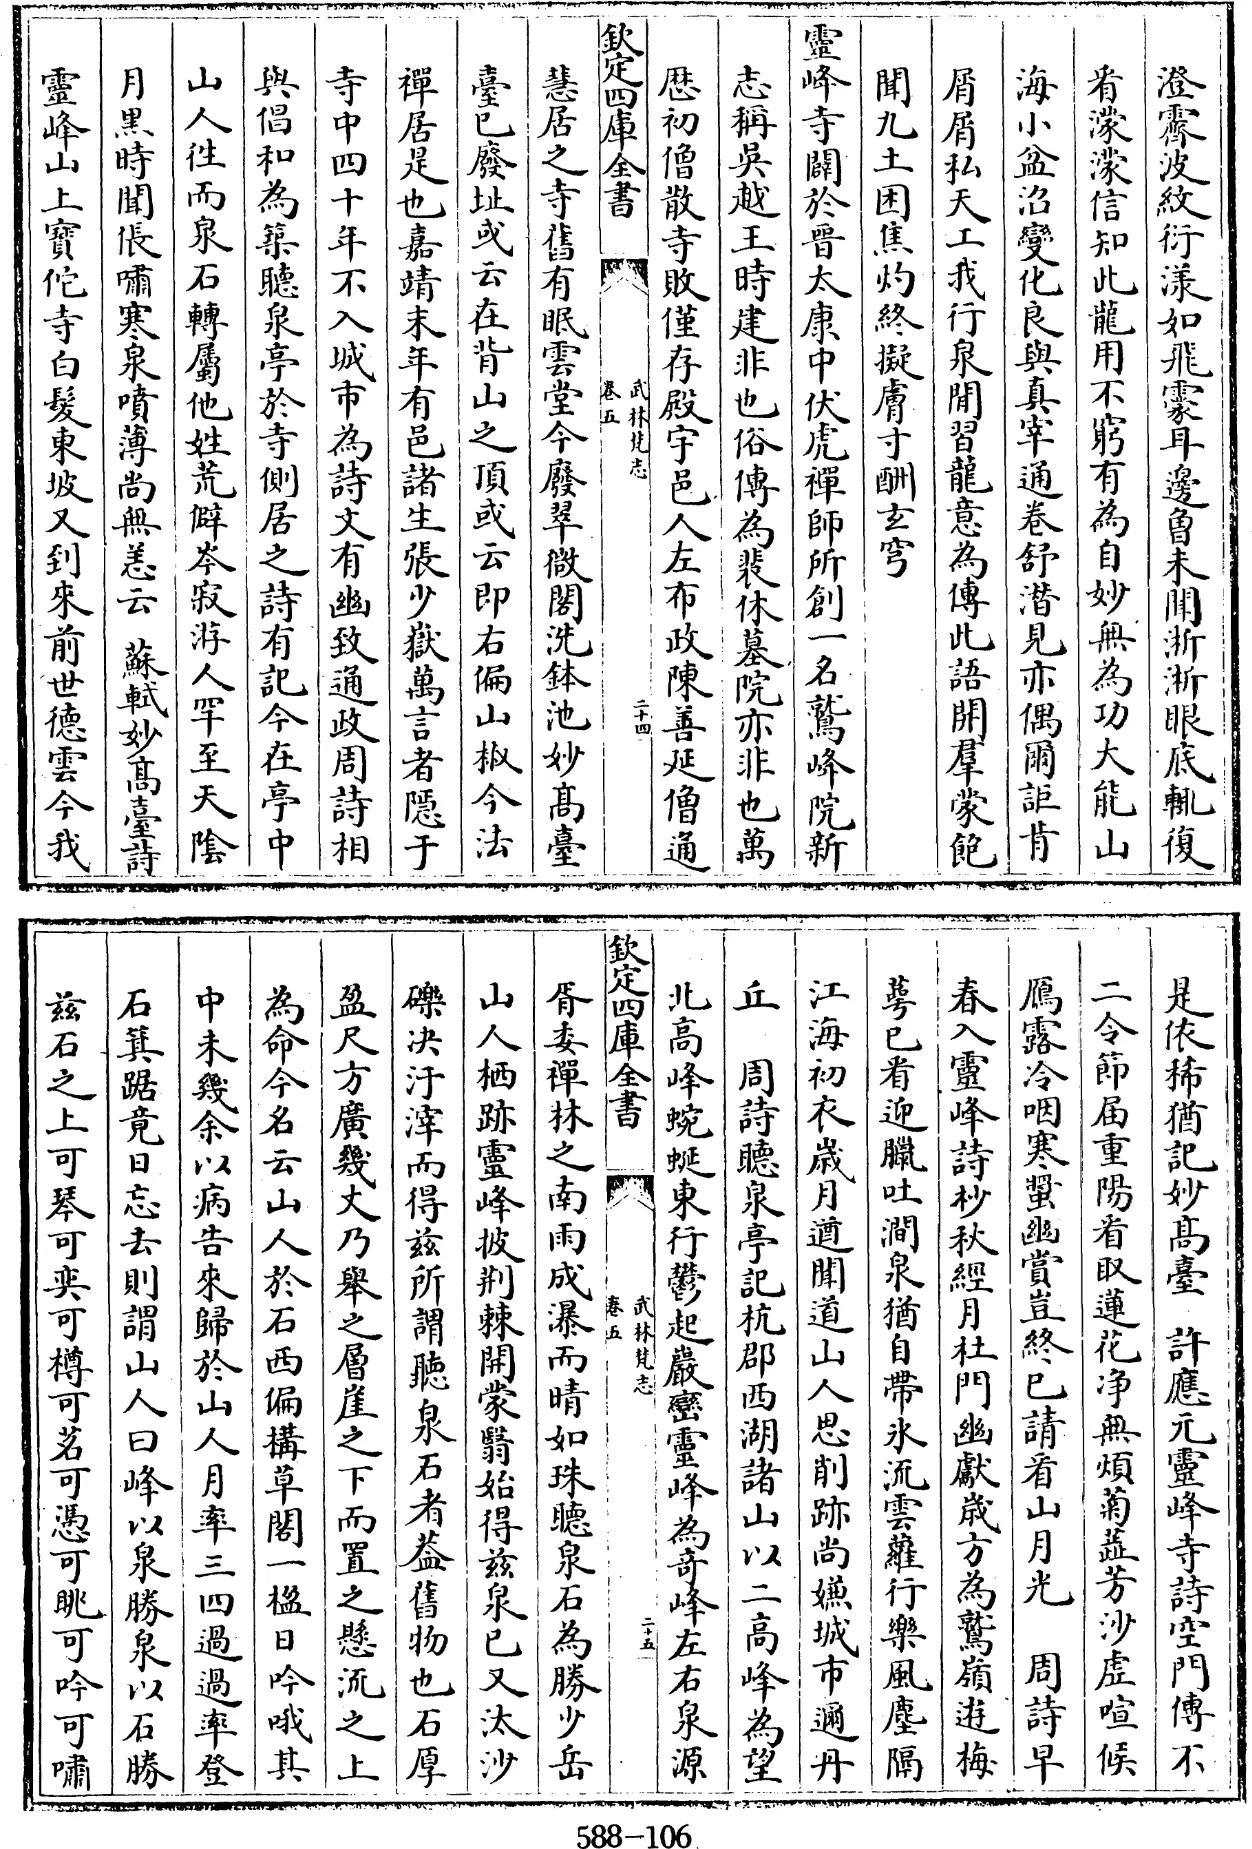 澄霽波紋衍漾如飛霧耳邊魯未聞淅淅眼底輒復
看濛濛信知此龍用不窮有為自妙無為功大能山
海小盆沼變化良與真宰通卷舒潛見亦偶爾詎肯
屑屑私天工我行泉閒習龍意為傳此語開羣蒙飽
聞九土困焦灼終擬膚寸酬玄穹
靈峰寺闢於晉太康中伏虎禪師所創一名鷲峰院新
志稱吳越王時建非也俗傳為裴休墓院亦非也萬
厯初僧散寺敗僅存殿宇邑人左布政陳善延僧通
欽定四庫全書
武林梵志
卷五
二十四
慧居之寺舊有眠雲堂今廢翠微閣洗鉢池妙髙臺
臺已廢址或云在背山之頂或云即右偏山椒今法
禪居是也嘉靖末年有邑諸生張少嶽萬言者隱于
寺中四十年不入城市為詩文有幽致通政周詩相
與倡和為築聽泉亭於寺側居之詩有記今在亭中
山人徃而泉石轉屬他姓荒僻岑寂游人罕至天陰
月黒時聞倀嘯寒泉噴薄尚無恙云 蘇軾妙髙臺詩
靈峰山上寶佗寺白髮東坡又到來前世德雲今我
是依稀猶記妙髙臺 許應元靈峰寺詩空門傳不
二令節届重陽看取蓮花净無煩菊蕋芳沙虛喧候
鴈露冷咽寒螿幽賞豈終已請看山月光 周詩早
春入靈峰詩杪秋經月杜門幽獻歲方為鷲嶺遊梅
萼已看迎臘吐澗泉猶自帶氷流雲蘿行樂風塵隔
江海初衣歲月遒聞道山人思削跡尚嫌城市邇丹
丘 周詩聽泉亭記杭郡西湖諸山以二高峰為望
北高峰蜿蜒東行鬱起巖巒靈峰為竒峰左右泉源
欽定四庫全書
武林梵志
卷五
二十五
胥委禪林之南雨成瀑而晴如珠聽泉石為勝少岳
山人栖跡靈峰披荆棘開蒙翳始得兹泉已又汰沙
礫决汙滓而得兹所謂聽泉石者葢舊物也石厚
盈尺方廣幾丈乃舉之層崖之下而置之懸流之上
為命今名云山人於石西偏構草閣一楹日吟哦其
中未幾余以病告來歸於山人月率三四過過率登
石箕踞竟日忘去則謂山人曰峰以泉勝泉以石勝
兹石之上可琴可奕可樽可茗可憑可眺可吟可嘯
588-106